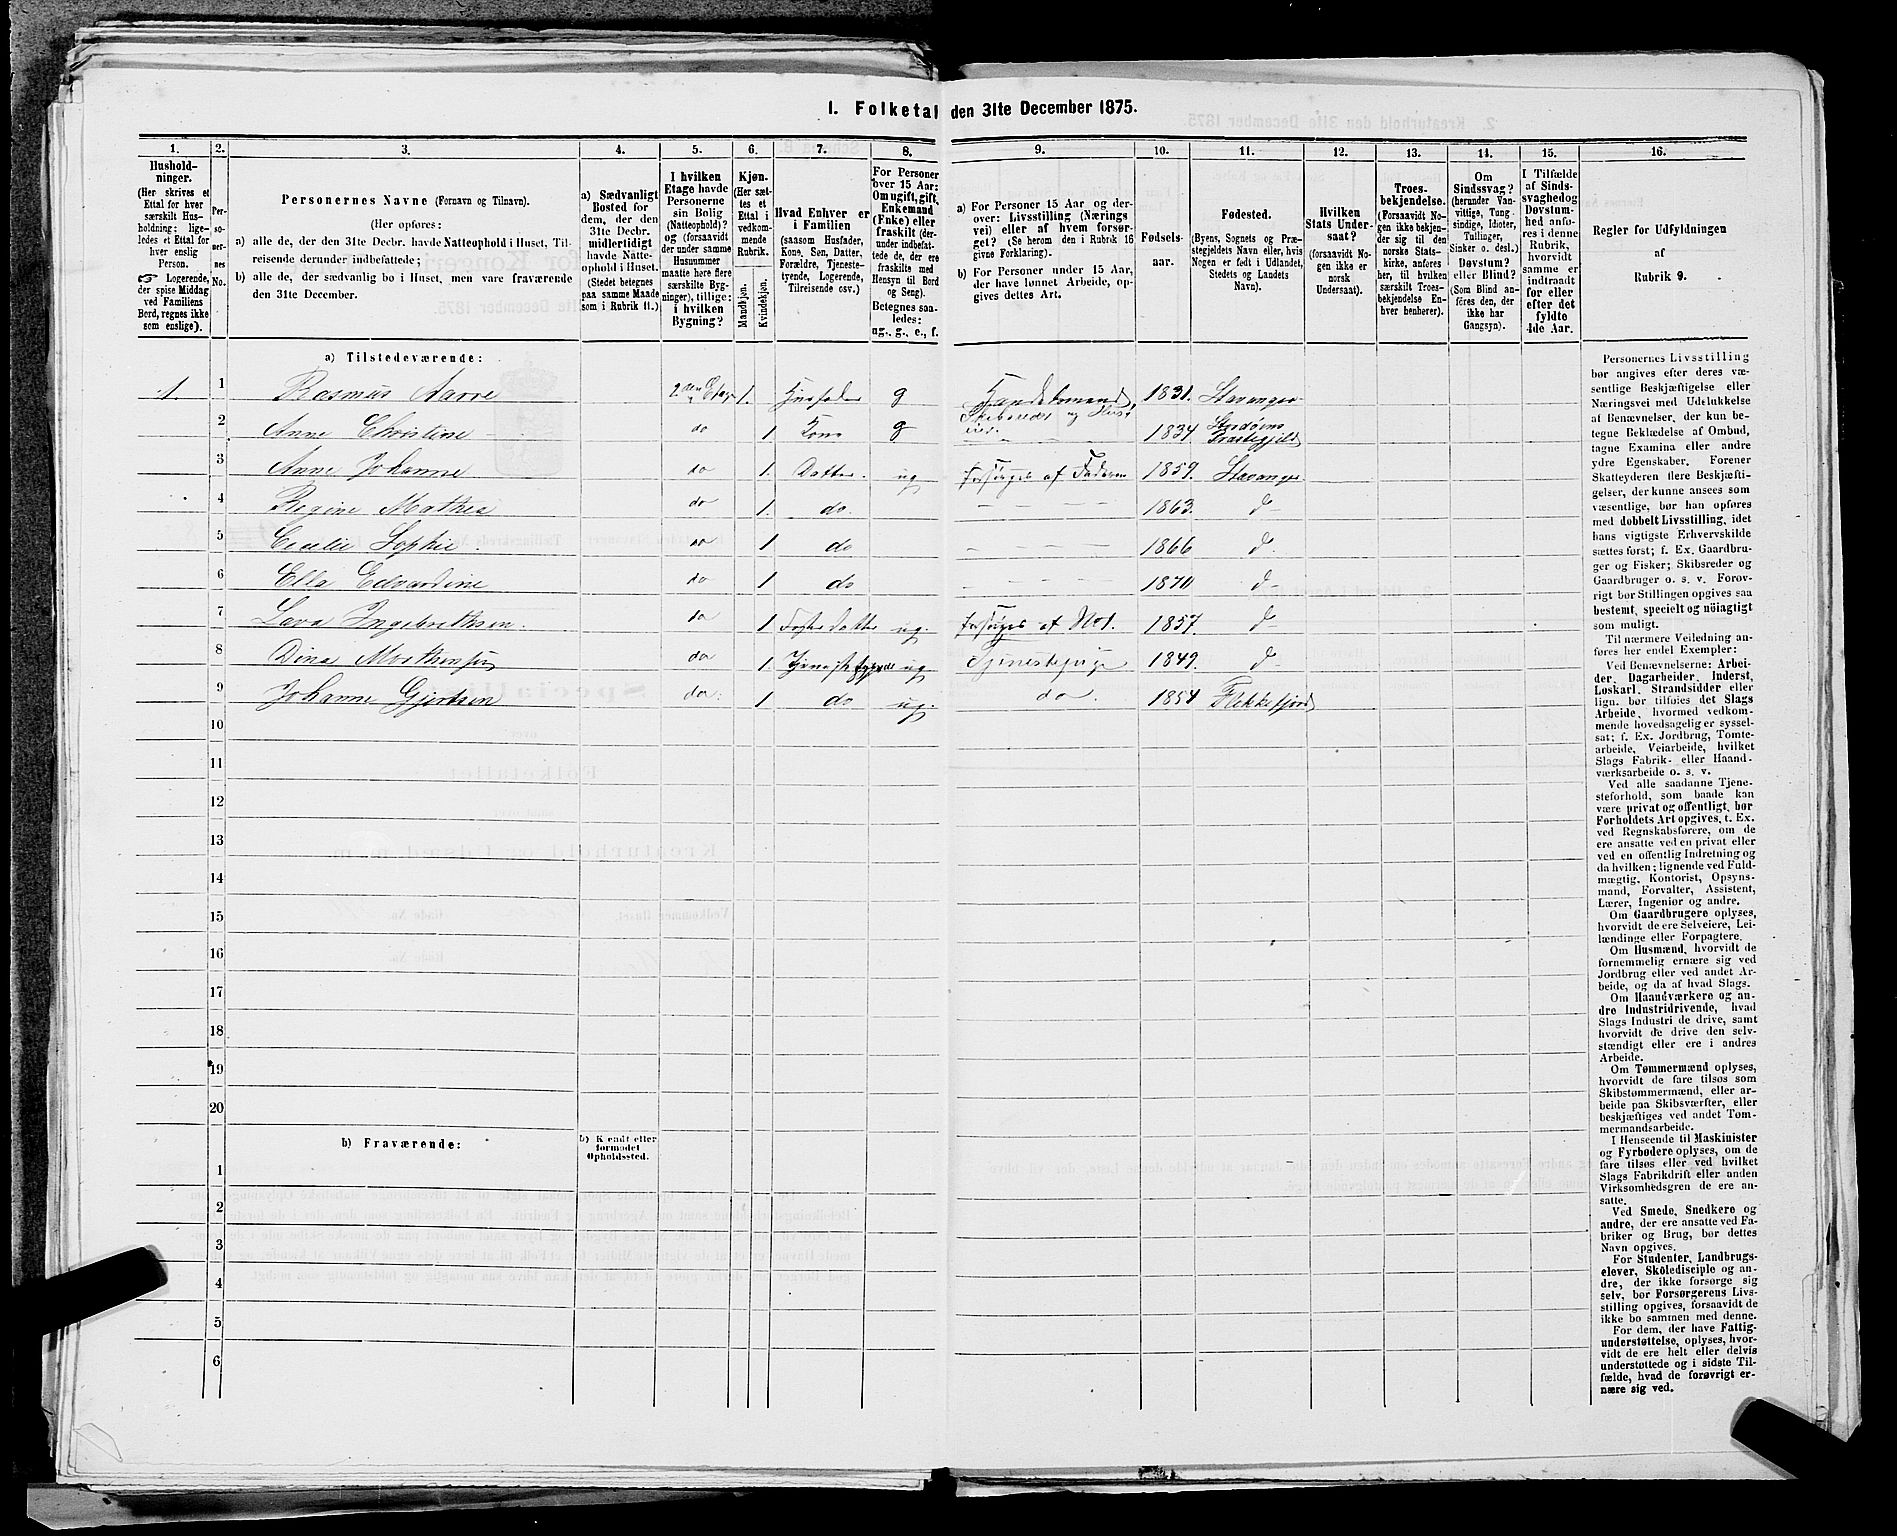 I. Folketal den 31te December 1875.
1. 2. 3. 4. 5. 6. 7. 8. 9. 10. 11. 12. 13. 14. 15. 16.
Hushold-
ninger.
(Her skrives et
Ettal for hver
særskilt Hus-
holdning; lige-
ledes et Ettal for
hver enslig
Person.
☞ Logerende,
der spise Middag
ved Familiens
Bord, regnes ikke
som enslige).
Per-
so-
ner-
nes
No.
Personernes Navne (Fornavn og Tilnavn).
(Her opføres:
a) alle de, der den 31te Decbr. havde Natteophold i Huset, Til-
reisende derunder indbefattede;
b) alle de, der sædvanlig bo i Huset, men vare fraværende
den 31te December.
a) Sædvanligt
Bosted for
dem, der den
31te Decbr.
midlertidigt
havde Natte-
ophold i Huset.
(Stedet betegnes
paa samme Maade
som i Rubrik 11.)
I hvilken
Etage havde
Personerne
sin Bolig
(Natteophold)?
og (forsaavidt
der under samme
Husnummer
maatte høre flere
særskilte Byg-
ninger), tillige:
i hvilken
Bygning?
Kjøn.
(Her sæt-
tes et
Ettal i
vedkom-
mende
Rubrik.
Mandkjøn.
Kvindekjøn.
Hvad Enhver er
i Familien
(saasom Husfader,
Kone, Søn, Datter,
Forældre, Tjeneste-
tyende, Logerende,
Tilreisende osv.)
For Personer
over 15 Aar:
Om ugift, gift,
Enkemand
(Enke) eller
fraskilt (der-
under indbefat-
tede de, der ere
fraskilte med
Hensyn til Bord
og Seng).
Betegnes saa-
ledes:
ug., g., e., f.
a) For Personer 15 Aar og der-
over: Livsstilling (Nærings-
vei) eller af hvem forsør-
get? (Se herom den i Rubrik 16
givne Forklaring).
b) For Personer under 15 Aar,
der have lønnet Arbeide, op-
gives dettes Art.
Fødsels-
aar.
Fødested.
(Byens, Sognets og Præ-
stegjeldets Navn eller, hvis
Nogen er født i Udlandet,
Stedets og Landets
Navn).
Hvilken
Stats Under-
saat?
(forsaavidt No-
gen ikke er
norsk
Undersaat).
Troes-
bekjendelse.
(Forsaavidt No-
gen ikke bekjen-
der sig til den
norske Stats-
kirke, anføres
her, til hvilken
særskilt Troes-
bekjendelse En-
hver henhører).
Om
Sindssvag?
(herunder Van-
vittige, Tung-
sindige, Idioter,
Tullinger,
Sinker o. desl.)
Døvstum?
eller Blind?
(Som Blind an-
føres den, der
ikke har
Gangsyn).
I Tilfælde
af Sinds-
svaghed og
Døvstum-
hed anfø-
res i denne
Rubrik,
hvorvidt
samme er
indtraadt
før eller
efter det
fyldte
4de Aar.
Regler for Udfyldningen
af
Rubrik 9.
a) Tilstedeværende:
1. 1 Rasmus Aarre 2den Etage 1. Husfader g Handelsmand, 1831. Stavanger
Skibsreder og Hus-
eier.
2 Anne Christine do 1 Kone g 1834. Prestegjeld
3 Anne Johanne do 1. Datter. ug forsørges af Faderen 1859. Stavanger
4 Regine Mathea do 1. do 1863. d
5 Cecilie Sophie do 1 do 1866 d.
6 Ella Edvardine do 1 do 1870 d
7 Lava Ingebrethsen. do 1 Foster datter ug. forsørges af 1857. d
8 Dina do 1 ug Tjenestepige 1849. d
9 Johanne Gjertsen do 1 do ug. do. 1854 Flekkefjord
10
11
12
13
14
15
16
17
18
19
20
b) Fraværende:
b) Kjendt eller
formodet
Opholdssted.
1
2
3
4
5
6
Personernes Livsstilling
bør angives efter deres væ-
sentlige Beskjæftigelse eller
Næringsvei med Udelukkelse
af Benævnelser, der kun be-
tegne Beklædelse af Ombud,
tagne Examina eller andre
ydre Egenskaber. Forener
Skatteyderen flere Beskjæfti-
gelser, der kunne ansees som
væsentlige, bør han opføres
med dobbelt Livsstilling, idet
hans vigtigste Erhvervskilde
sættes først; f. Ex. Gaardbru-
ger og Fisker; Skibsreder og
Gaardbruger o. s. v. Forøv-
rigt bør Stillingen opgives saa
bestemt, specielt og nøiagtigt
som muligt.
Til nærmere Veiledning an-
føres her endel Exempler:
Ved Benævnelserne: Arbei-
der, Dagarbeider, Inderst,
Løskarl, Strandsidder eller
lign. bør tilføies det Slags
Arbeide, hvormed vedkom-
mende hovedsagelig er syssel-
sat; f. Ex. Jordbrug, Tomte-
arbeide, Veiarbeide, hvilket
Slags Fabrik- eller Haand-
værksarbeide o. s. v.
Ved alle saadanne Tjene-
steforhold, som baade kan
være privat og offentligt, bør
Forholdets Art opgives, t. Ex.
ved Regnskabsførere, om de
ere ansatte ved en privat eller
ved en offentlig Indretning og
da hvilken; lignende ved Fuld-
mægtig, Kontorist, Opsyns-
mand, Forvalter, Assistent,
Lærer, Ingeniør og andre.
Om Gaardbrugere oplyses,
hvorvidt de ere Selveiere, Lei-
lændinge eller Forpagtere.
Om Husmænd, hvorvidt de
fornemmelig ernære sig ved
Jordbrug eller ved andet Ar-
beide, og da af hvad Slags.
Om Haandværkere og an-
dre Industridrivende, hvad
Slags Industri de drive, samt
hvorvidt de drive den selv-
stændigt eller ere i andres
Arbeide.
Om Tømmermænd oplyses,
hvorvidt de fare tilsøs som
Skibstømmermænd, eller ar-
beide paa Skibsværfter, eller
beskjæftiges ved andet Tøm-
mermandsarbeide.
I Henseende til Maskinister
og Fyrbødere oplyses, om de
fare tilsøs eller ved hvilket
Slags Fabrikdrift eller anden
Virksomhedsgren de ere an-
satte.
Ved Smede, Snedkere og
andre, der ere ansatte ved Fa-
briker og Brug, bør dettes
Navn opgives.
For Studenter, Landbrugs-
elever, Skoledisciple og an-
dre, der ikke forsørge sig
selv, bør Forsørgerens Livs-
stilling opgives, forsaavidt de
ikke bo sammen med denne.
For dem, der have Fattig-
understøttelse, oplyses, hvor-
vidt de ere helt eller delvis
understøttede og i sidste Til-
fælde, hvad de forøvrigt er-
nære sig ved.